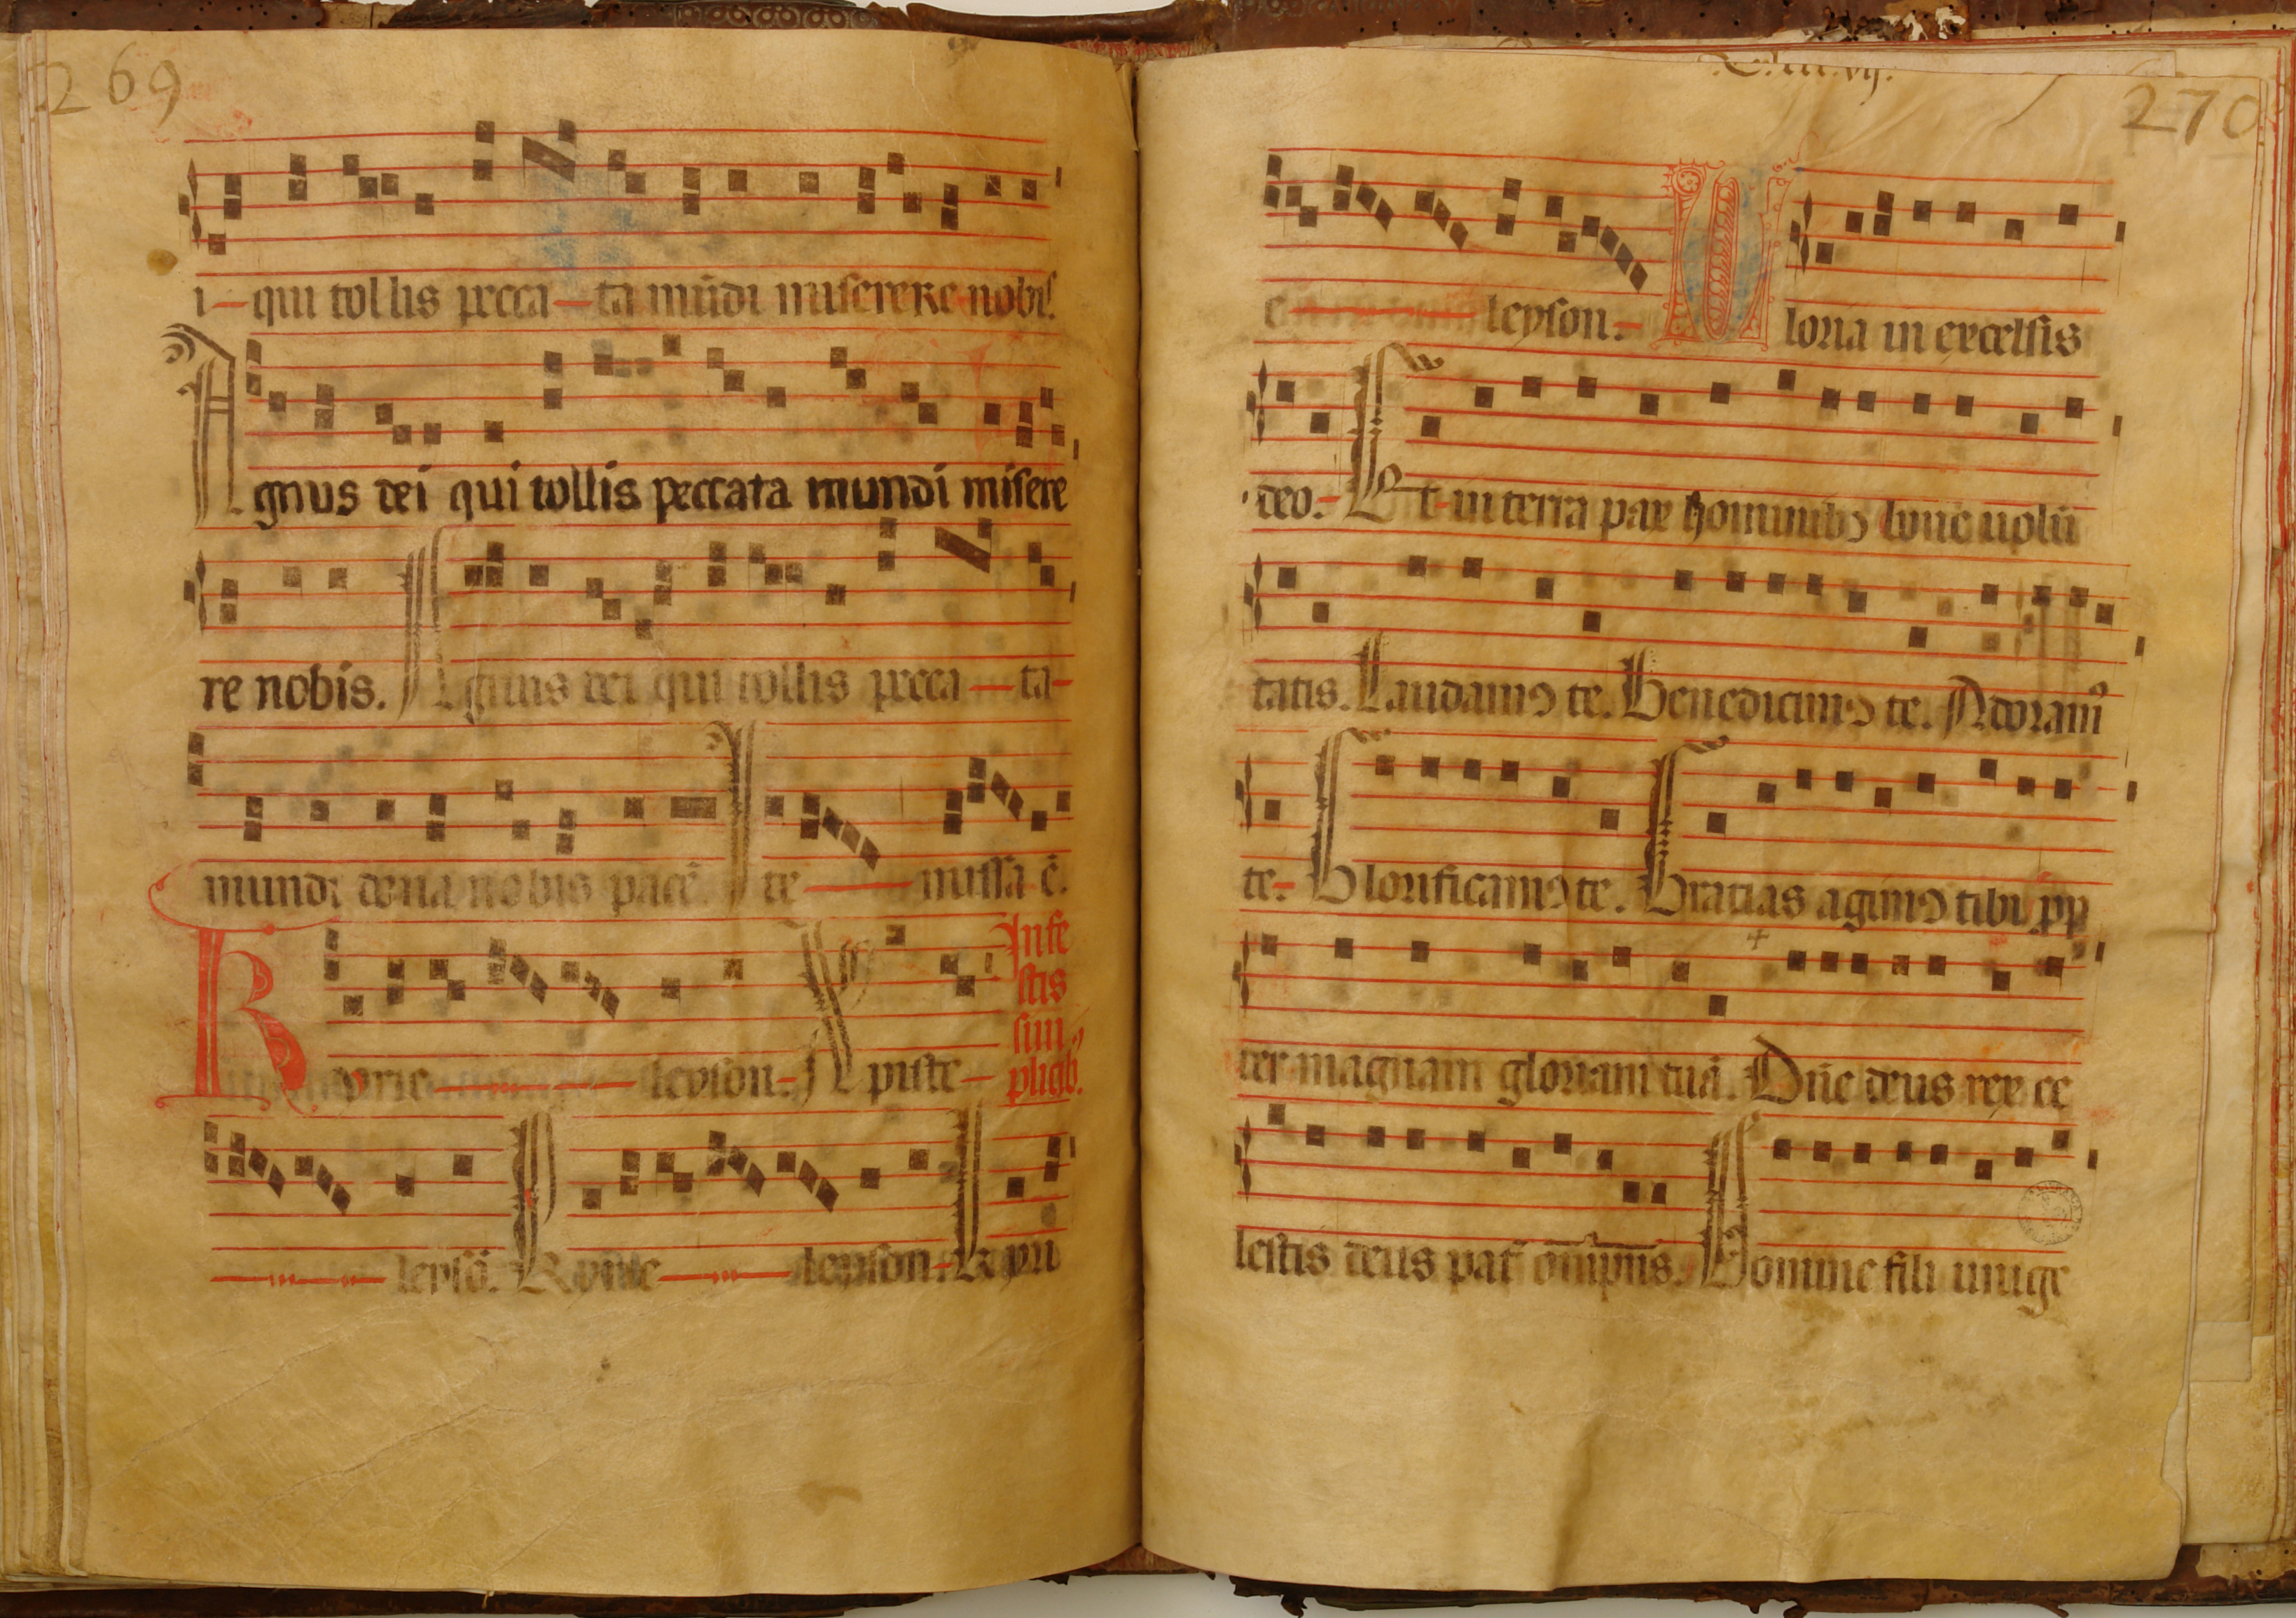 269
i-qui tollis pecca-ta mūdi miserere nobis.
Agnus dei qui tollis peccata mundi misere
re nobis. Agnus dei qui tollis pecca-ta-
mundi dona nobis pacē. Ite missa ē.
In fe
stis
sim
plicib.
Kyrie leyson- Xpiste-
leysō. Kyrie leyson- Kyri
270
e leyson- Gloria in excelsis
deo.- Et in terra pax hominibꝰ bone uolū
tatis. Laudamꝰ te. Benedicimꝰ te. Adoramꝰ
te- Glorificamꝰ te. Gratias agimꝰ tibi ꝓp
ter magnam gloriam tuā. Dn̄e deus rex ce
lestis deus pat̄ om̄ipn̄s. Domine fili unige